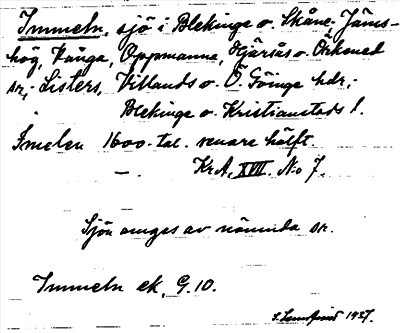 Immeln, sjö i Blekinge o. Skåne. Jäms-
hög, Vånga, Oppmanna, Hjärsås o. Örkened
sr, Listers, Villands o. Ö. Göinge hdr,
Blekinge o. Kristianstads l.
Imelen 1600-tal. senare hälft.
— . KrA, XVII. No 7.
Sjön anges av nämnda sr.
Immeln ek, G. 10.
1927.